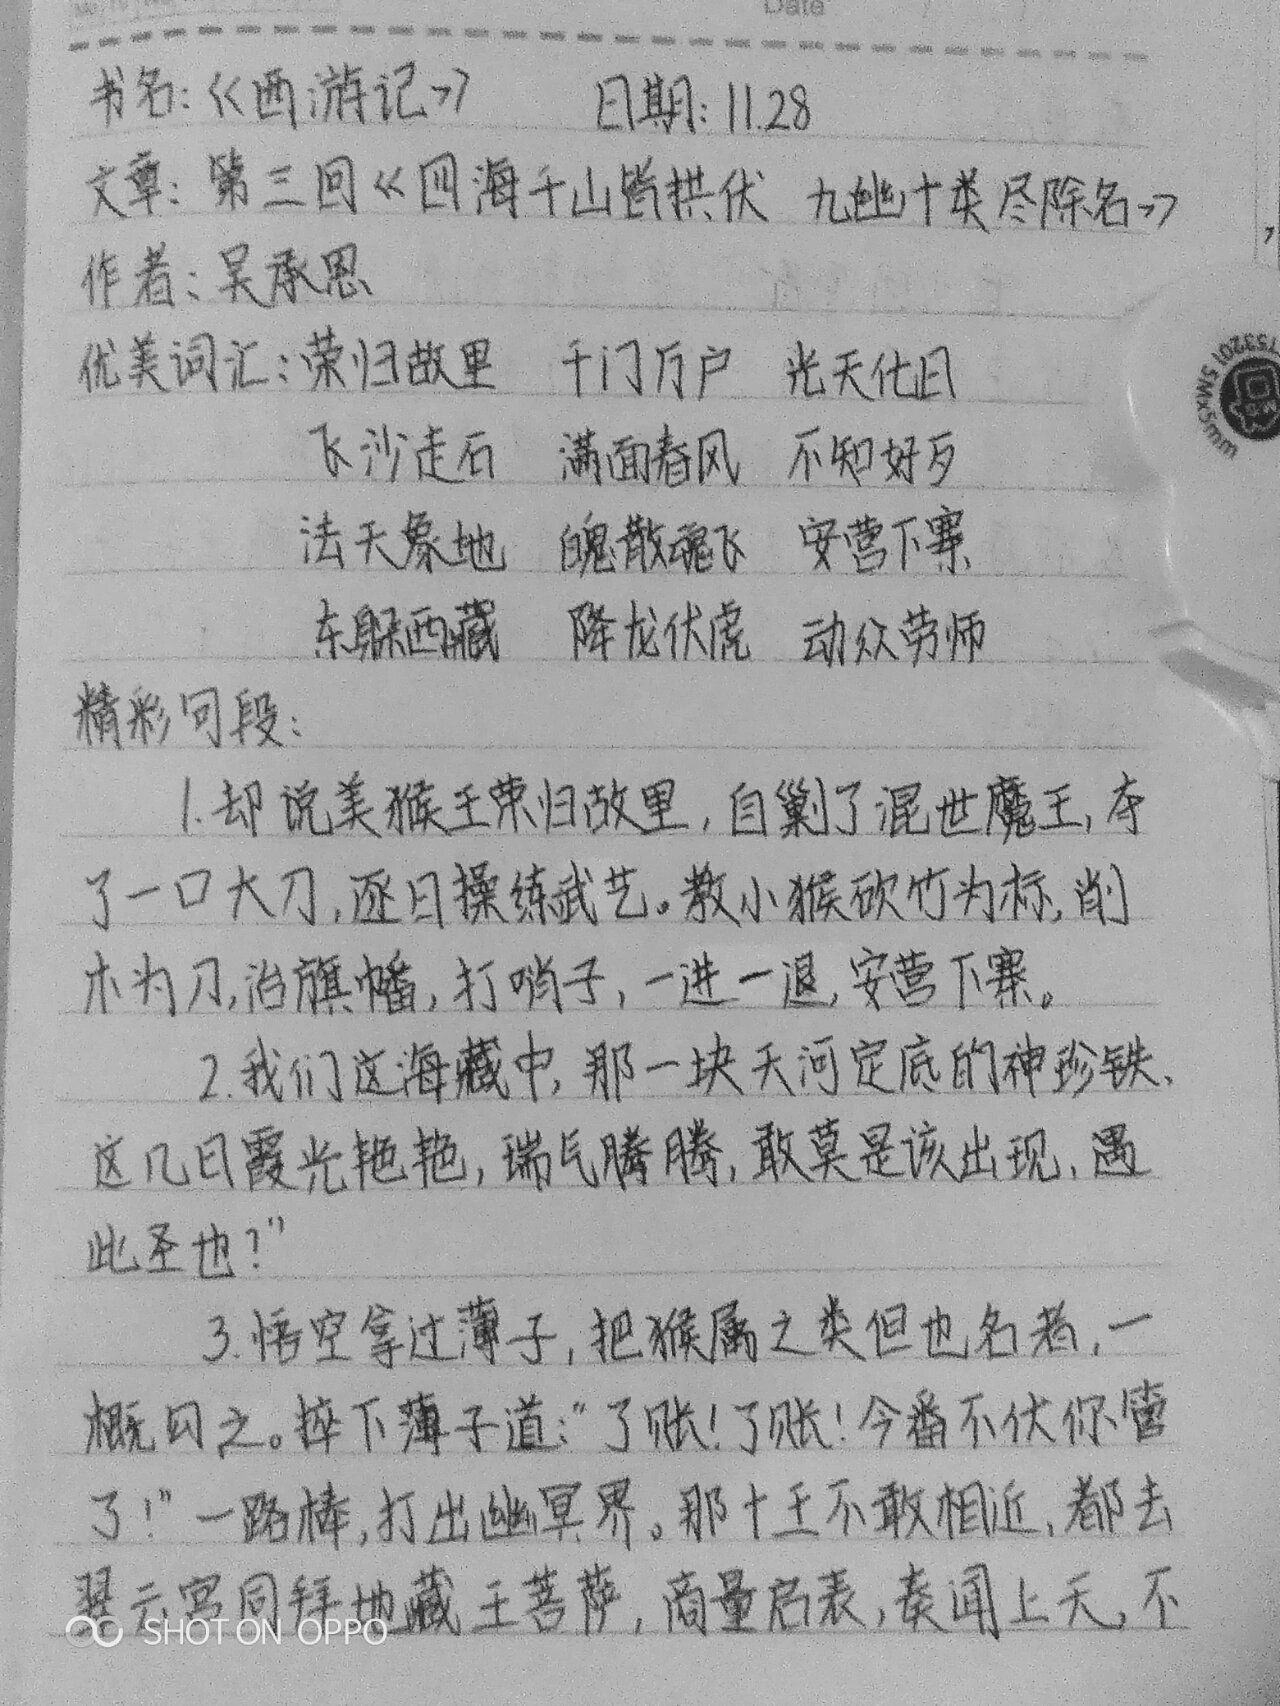 Date
书名:《西游记》 日期: 11.28
文章: 第三回《四海千山皆拱伏 九幽十类尽除名》
作者: 吴承恩
优美词汇: 荣归故里 千门万户 光天化日
飞沙走石 满面春风 不知好歹
法天象地 魄散魂飞 安营下寨
东躲西藏 降龙伏虎 动众劳师
精彩句段:
1.却说美猴王荣归故里,自剿了混世魔王,夺
了一口大刀,逐日操练武艺。教小猴砍竹为标,削
木为刀,治旗幡,打哨子,一进一退,安营下寨。
2.我们这海藏中,那一块天河定底的神珍铁、
这几日霞光艳艳,瑞气腾腾,敢莫是该出现、遇
此圣也?"
3.悟空拿过薄子,把猴属之类但也名者,一
概勾之。摔下薄子道:"了账!了账!今番不伏你管
了!"一路棒,打出幽冥界。那十王不敢相近、都去
翠云宫同拜地藏王菩萨,商量启表,奏闻上天,不
SHOT ON OPPO